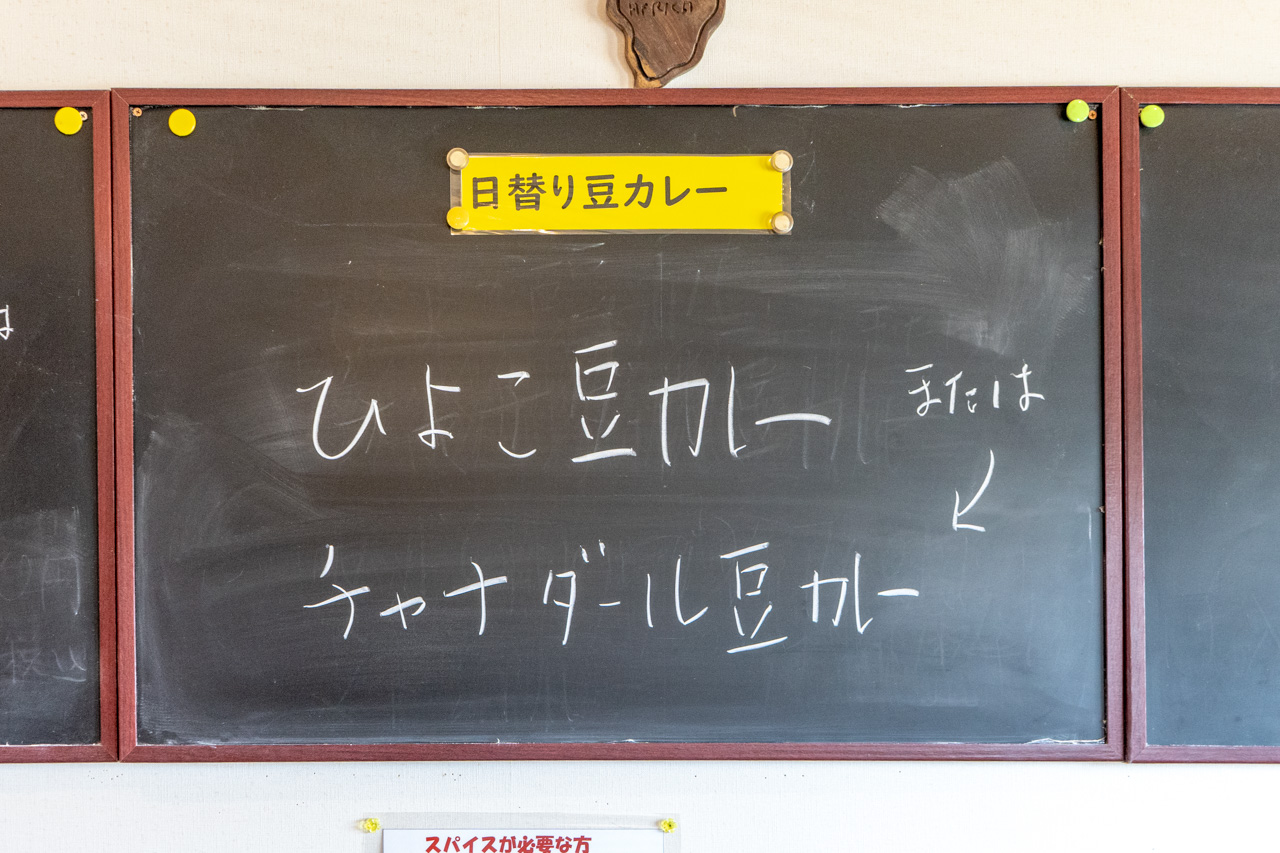 日替り豆カレー
ひよこ豆カレー または
↙
チャナダール豆カレー
スパイスが必要な方